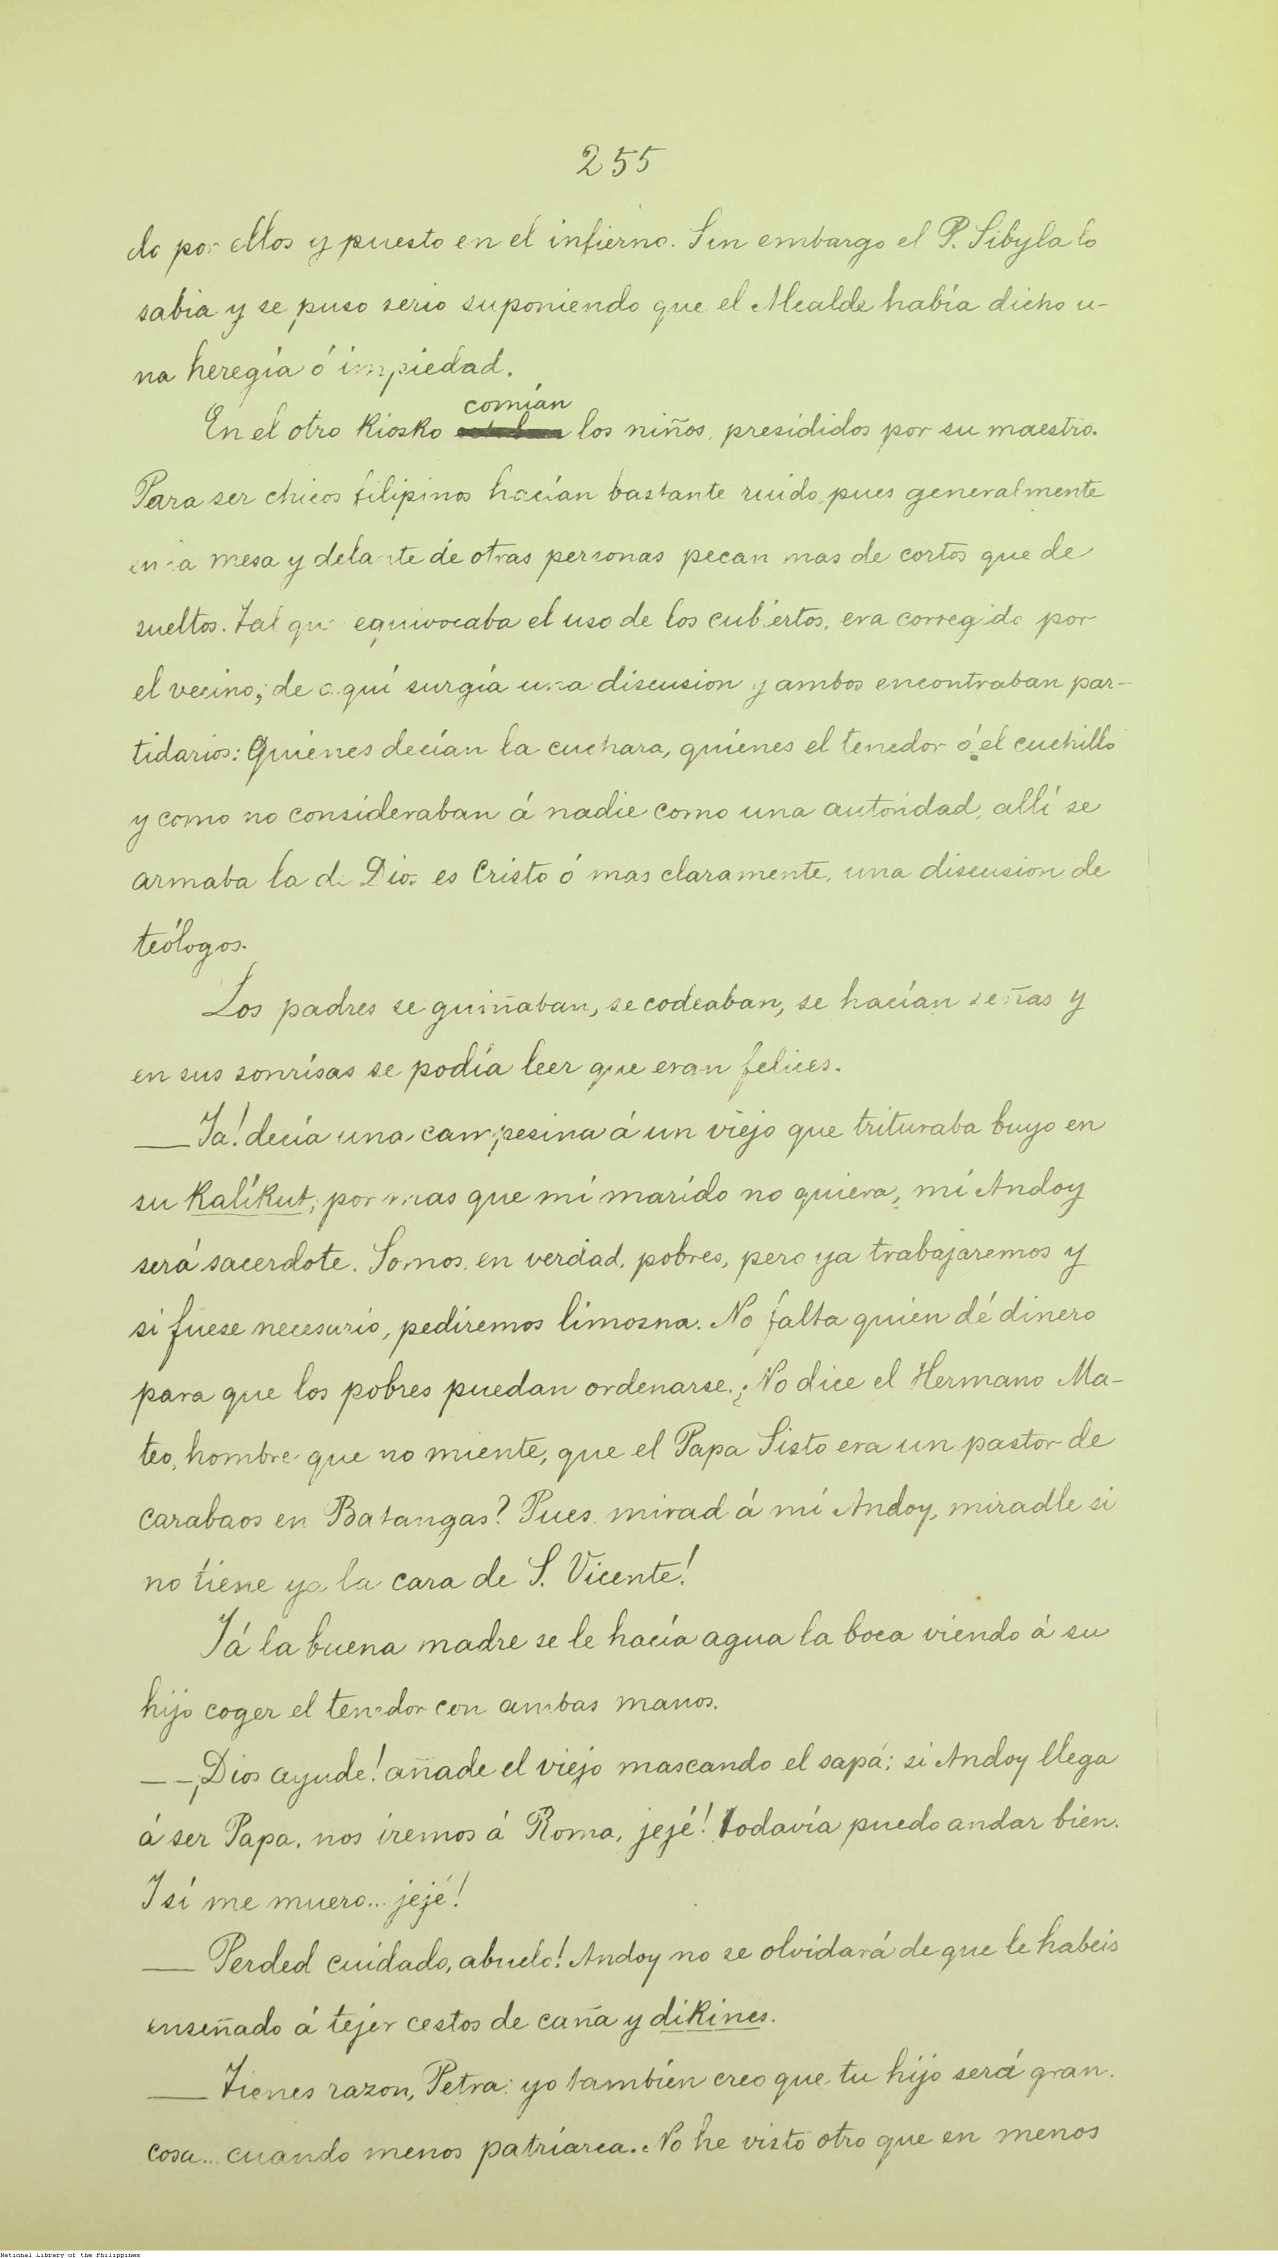 255
do por ellos y puesto en el infierno. Sin embargo el P. Sibyla lo
sabia y se puso serio suponiendo que el Alcalde había dicho u-
na heregía ó impiedad.
comían
En el otro kiosko los niños, presididos por su maestro.
Para ser chicos filipinos hacían bastante ruido, pues generalmente
en la mesa y delante de otras personas pecan mas de cortos que de
sueltos. Tal que equivocaba el uso de los cubiertos, era corregido por
el vecino; de aquí surgía una discusion y ambos encontraban par-
tidarios: Quiénes decían la cuchara, quienes el tenedor ó el cuchillo
y como no consideraban á nadie como una autoridad, allí se
armaba la de Dios es Cristo ó mas claramente, una discusion de
teólogos.
Los padres se guiñaban, se codeaban, se hacían señas y
en sus sonrisas se podía leer que eran felices.
— Ya! decía una campesina á un viejo que trituraba buyo en
su kalíkut; por mas que mi marido no quiera, mi Andoy
será sacerdote. Somos, en verdad, pobres, pero ya trabajaremos y
si fuese necesario, pediremos limosna. No falta quien dé dinero
para que los pobres puedan ordenarse. ¿No dice el Hermano Ma-
teo, hombre que no miente, que el Papa Sisto era un pastor de
carabaos en Batangas? Pues mirad á mi Andoy, miradle si
no tiene ya la cara de S. Vicente!
Y á la buena madre se le hacía agua la boca viendo á su
hijo coger el tenedor con ambas manos.
— ¡Dios ayude! añade el viejo mascando el sapá; si Andoy llega
á ser Papa, nos iremos á Roma, jejé! todavía puedo andar bien.
Y si me muero... jejé!
— Perded cuidado, abuelo! Andoy no se olvidará de que le habeis
enseñado á tejer cestos de caña y dikines.
— Tienes razon, Petra; yo también creo que tu hijo será gran
cosa... cuando menos patriarca. No he visto otro que en menos
National Library of the Philippines